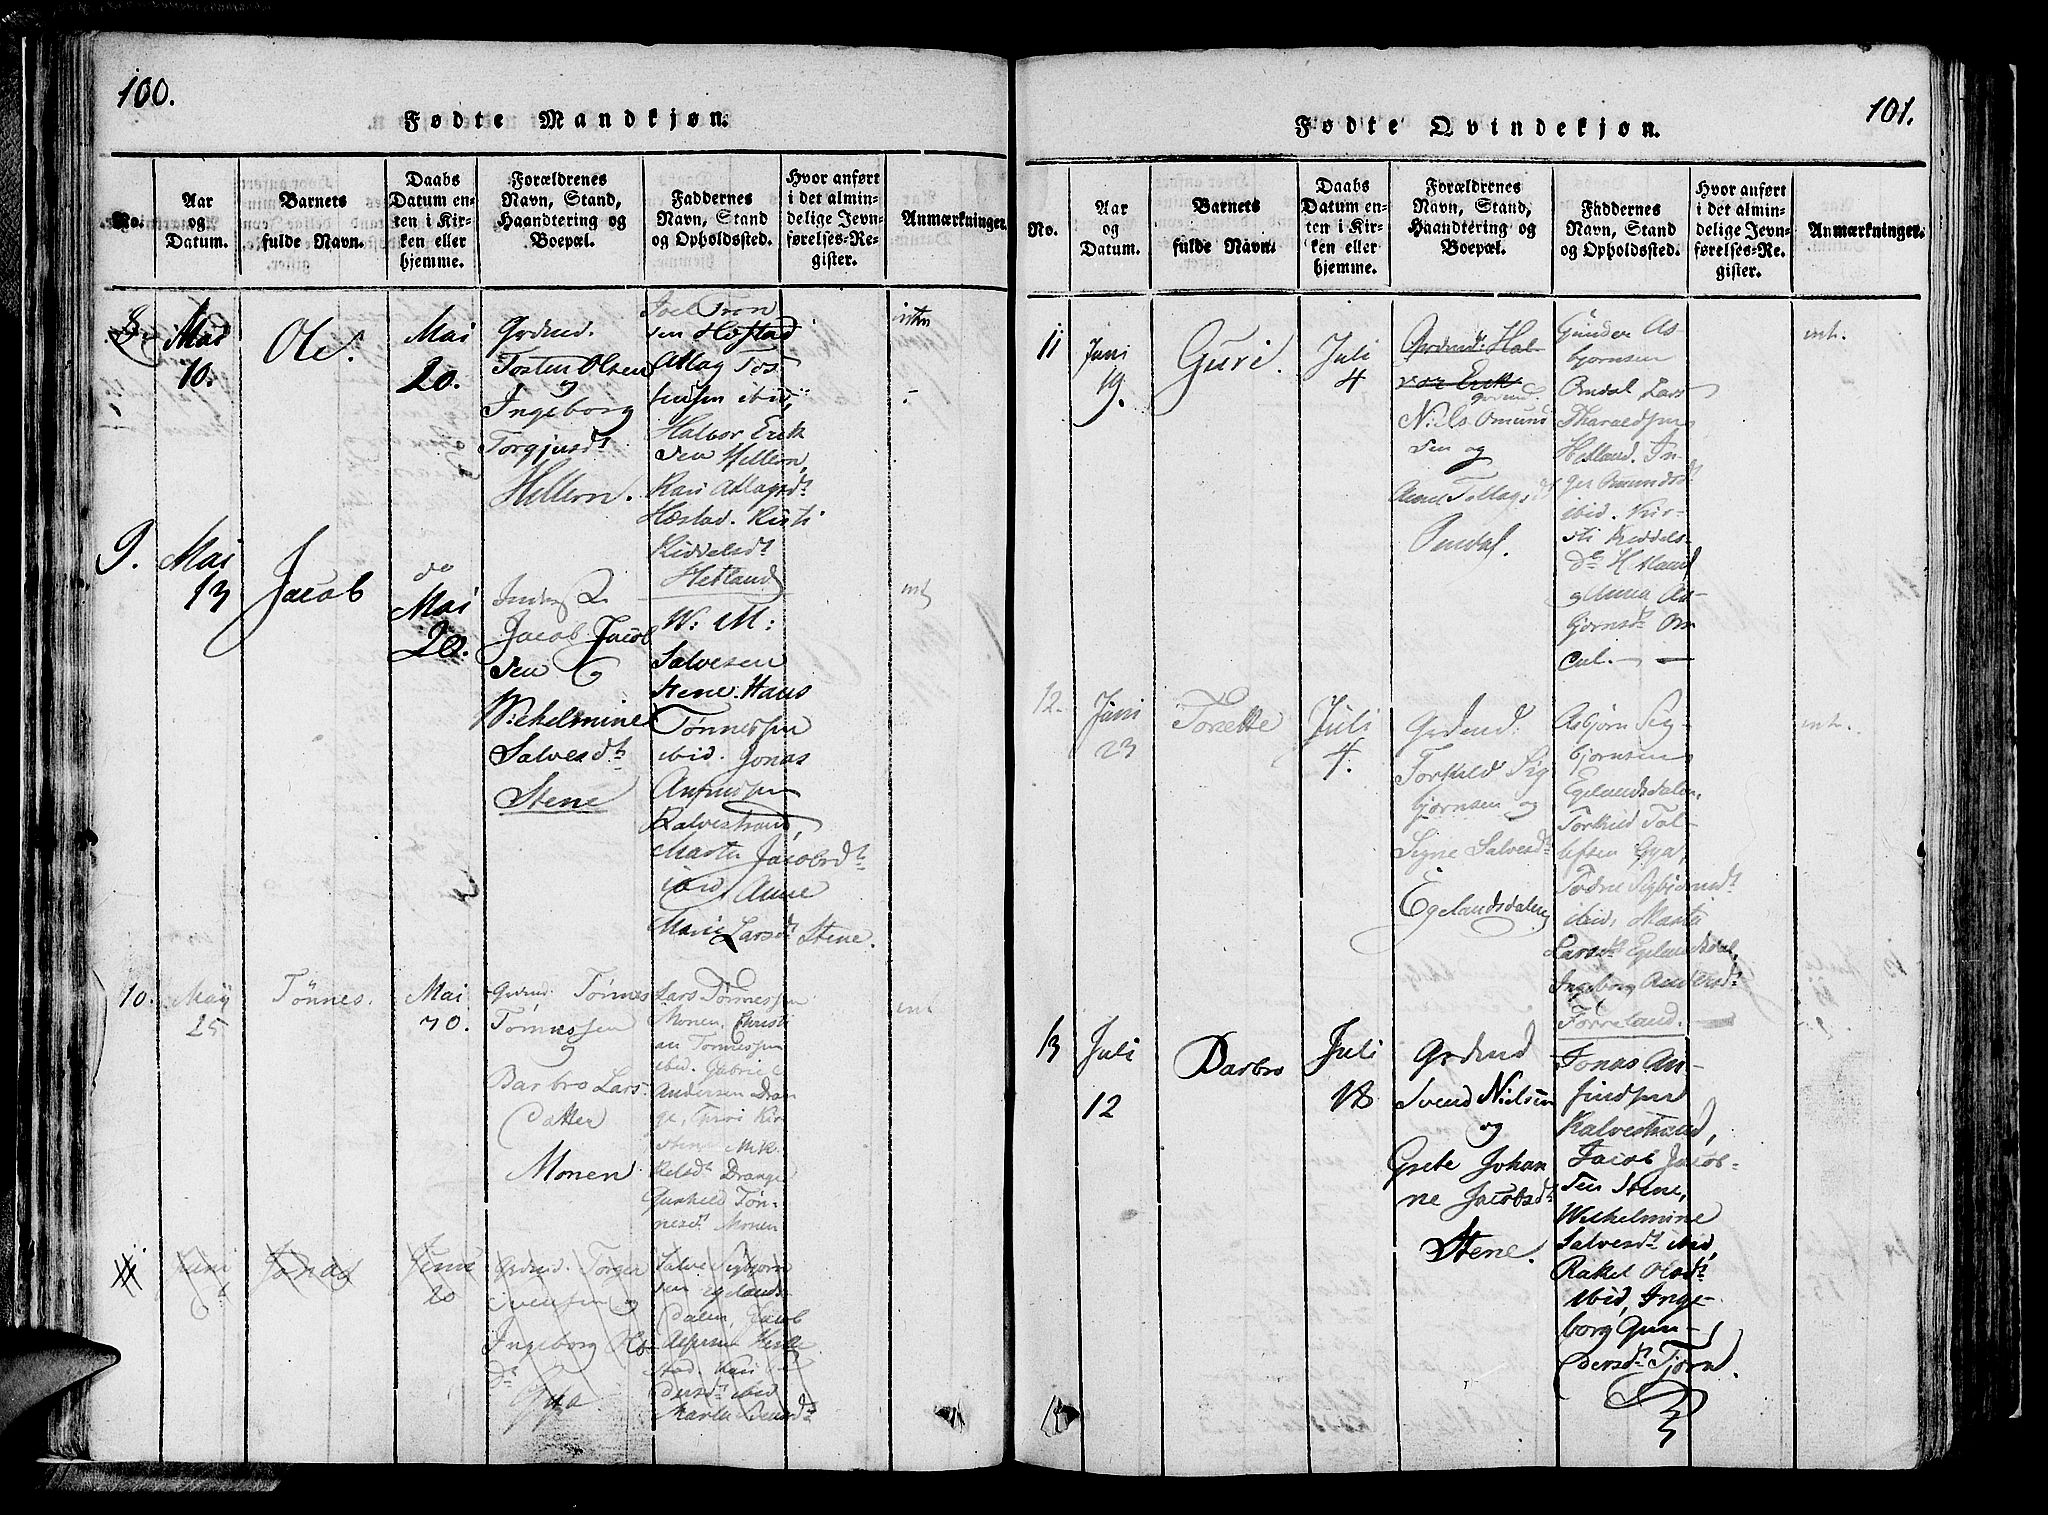 100.
Fødte Mandkjøn.
No.
Aar
og
Datum.
Barnets
fulde Navn.
Daabs
Datum en-
ten i Kir-
ken eller
hjemme.
Forældrenes
Navn, Stand,
Haandtering og
Boepæl.
Faddernes
Navn, Stand
og Opholdssted.
Hvor anført
i det almin-
delige Jevn-
førelses-Re-
gister.
Anmærkninger.
8.
Mai
10.
Ole.
Mai
20.
Grdmd.
Tosten Olsen
og
Ingeborg
Torgjusdt
Hellern.
Joel Tron
sen Hæstad
Aslag Tos
tensen ibid,
Halvor Erik
sen Hellern,
Kari Aslagsdt
Hæstad. Kisti
Kiddelsdt
Hetland
9.
Mai
13
Jacob
do
Mai
20.
Jacob Jacob
sen og
Wilhelmine
Salvesdt
Stene
W. M:
Salvesen
Stene. Hans
Tønnessen
ibid. Jonas
Anfindsen
Kalvestrand,
Marte Jacobsdt
ibid, Anne
Marie Larsdt Stene.
int
10.
May
25
Tönnes.
Mai
30.
Grdmd. Tønnes
Tønnessen
og
Barbro Lars
Datter
Monen
Lars Tønnessen
Monen, Christi
an Tønnessen
ibid. Gabriel
Andersen Dran
ge,
Stene Mik
kelsdt Drange
Gunhild Tøn-
nesdt Monen
int
11
Juni
6
Jonas
Juni
20
Grdmd. Torger
Svensen og
Ingeborg Ols
dt
Gya.
Salve Sigbjørn
sen Egelands
dalen, Jacob
stad Kari
dersdt ibid
Marthe Svensdt
101.
Fødte Qvindekjøn.
No.
Aar
og
Datum.
Barnets
fulde Navn.
Daabs
Datum en-
ten i Kir-
ken eller
hjemme.
Forældrenes
Navn, Stand,
Haandtering og
Boepæl.
Faddernes
Navn, Stand
og Opholdssted.
Hvor anført
i det almin-
delige Jevn-
førelses-Re-
gister.
Anmærkninger.
11
Juni
19.
Guri.
Juli
4
Grdmd: Hal
vor Erik
Grdmd.
Niels Omund
sen og
Anne Tollagsdt
Omdal.
Gunder As
bjørnsen
Omdal, Lars
Tharaldsen
Hetland. In-
ger Omundsdt
ibid. Kir-
sti Kiddels-
dt Hetland
og Anna As-
bjørnsdt Om
dal.
int.
12.
Juni
23
Torette
Juli
4.
Grdmd:
Torkild Sig
bjørnsen og
Signe Salvesdt
Egelandsdalen
Asbjørn Sig-
bjørnsen
Egelandsdalen,
Torkild Tol-
lefsen Gya,
Todne Sigbjørnsdt
ibid, Marte
Larsdt Egelandsdal,
Ingeborg Andersdt
Førreland.
int.
13
Juli
12
Barbro
Juli
18
Grdmd
Svend Nielsen
og
Grete Johan
ne Jacobsdt
Stene.
Jonas An-
findsen
Kalvestrand,
Jacob Jacob-
sen Stene,
Wilhelmine
Salvesdt ibid,
Rakel Olsdt
ibid, Inge-
borg Gun-
dersdt Tjørn.